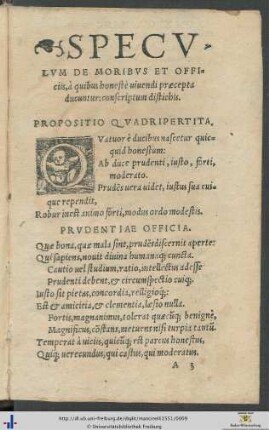 SPECV-
LVM DE MORIBVS ET OFFI-
ciis, à quibus honestè uiuendi præcepta
ducuntur: conscriptum distichis.
PROPOSITIO QVADRIPERTITA.
QVatuor è ducibus nascetur quic-
quid honestum:
Ab duce prudenti, iusto, forti,
moderato.
Prudēs uera uidet, iustus sua cui-
que rependit,
Robur inest animo forti, modus ordo modestis.
PRVDENTIAE OFFICIA.
Quæ bona, quæ mala sint, prudēs discernit aperte:
Qui sapiens, nouit diuina humanaq; cuncta.
Cautio uel studium, ratio, intellectus adesse
Prudenti debent, & circunspectio cuiq;
Iusto sit pietas, concordia, relligioq;:
Est & amicitia, & clementia, læsio nulla.
Fortis, magnanimus, tolerat quæcūq; benignè,
Magnificus, cōstans, metuens nisi turpia tantū.
Temperat à uitiis, quicūq; est parcus honestus,
Quiq; uerecundus, qui castus, qui moderatus.
A 3
http://dl.ub.uni-freiburg.de/diglit/mancinelli1551/0009
© Universitätsbibliothek Freiburg